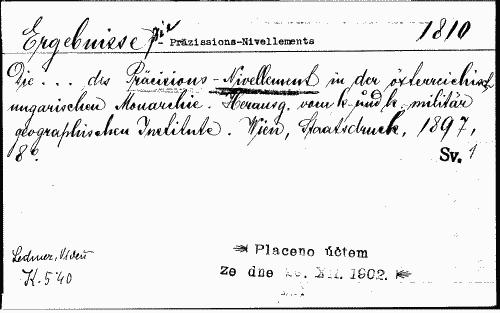 Ergebnisse die - Präzissions-Nivellements 1810
Die ... des Präcisions-Nivellement in der österreichisch
ungarischen Monarchie. Herausg. vom k. und k. militär
geographischen Institute. Wien, Staatsdruck, 1897,
8°. Sv. 1
Placeno účtem
ze dne XII. 1902.
K. 5'40